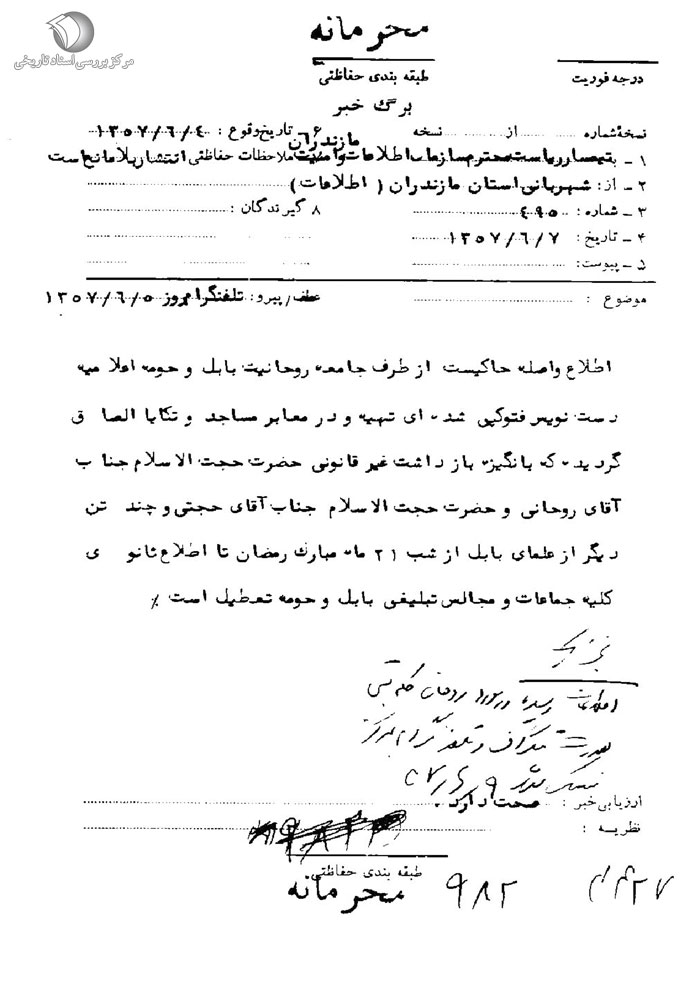 مرکز بررسی اسناد تاریخی
محرمانه
طبقه بندی حفاظتی
درجه فوریت
برگ خبر
نسخهٔ شماره از نسخه
۶ تاریخ وقوع : ۱۳۵۷/۶/۴
مازندران
۱ - به تیمسار ریاست محترم سازمان اطلاعات و امنیت
ملاحظات حفاظتی انتشار بلامانع است
۲ - از: شهربانی استان مازندران ( اطلاعات )
۳ - شماره : ۴۹۵
۸ گیرندگان :
۴ - تاریخ : ۱۳۵۷/۶/۷
۵ - پیوست:
موضوع :
عطف/پیرو: تلفنگرام روز ۱۳۵۷/۶/۵
اطلاع واصله حاکیست از طرف جامعه روحانیت بابل و حومه اعلامیه
دست نویس فتوکپی شده ای تهیه و در معابر مساجد و تکایا الصاق
گردیده که بانگیزه بازداشت غیر قانونی حضرت حجت الاسلام جناب
آقای روحانی و حضرت حجت الاسلام جناب آقای حجتی و چند تن
دیگر از علمای بابل از شب ۲۱ ماه مبارک رمضان تا اطلاع ثانوی
کلیه جماعات و مجالس تبلیغی بابل و حومه تعطیل است ٪
اطلاعات رسیده در مورد روحانی
بصورت تلگراف و تلفنگرام بمرکز
۵۷/۶/۹
ارزیابی خبر : صحت دارد .
نظریه :
طبقه بندی حفاظتی
محرمانه
۹۸۲